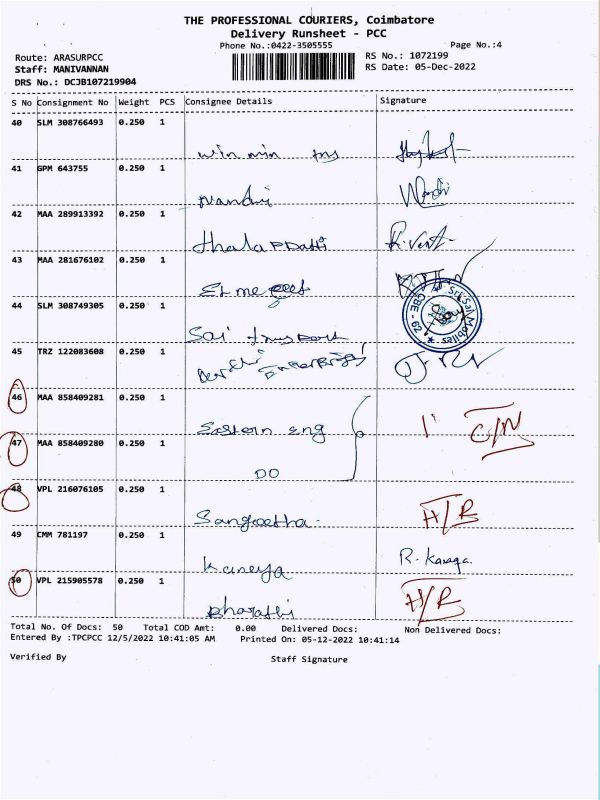 THE PROFESSIONAL COURIERS, Coimbatore
Delivery Runsheet - PCC
Phone No.:0422-3505555 Page No.:4
Route: ARASURPCC RS No.: 1072199
Staff: MANIVANNAN RS Date: 05-Dec-2022
DRS No.: DCJB107219904
S No Consignment No Weight PCS Consignee Details Signature
40 SLM 308766493 0.250 1
win min
41 GPM 643755 0.250 1
Nandri
42 MAA 289913392 0.250 1
thalappatti R. Vent
43 MAA 281676102 0.250 1
44 SLM 308749305 0.250 1
Sri Sai Mobiles CBE - 62
Sai
45 TRZ 122083608 0.250 1
46 MAA 858409281 0.250 1
Eastern eng C/N
47 MAA 858409280 0.250 1
DO
48 VPL 216076105 0.250 1
Sangeetha H/R
49 CMM 781197 0.250 1
Kaneya R. Karaga.
50 VPL 215905578 0.250 1
Bharathi H/R
Total No. Of Docs: 50 Total COD Amt: 0.00 Delivered Docs: Non Delivered Docs:
Entered By :TPCPCC 12/5/2022 10:41:05 AM Printed On: 05-12-2022 10:41:14
Verified By Staff Signature